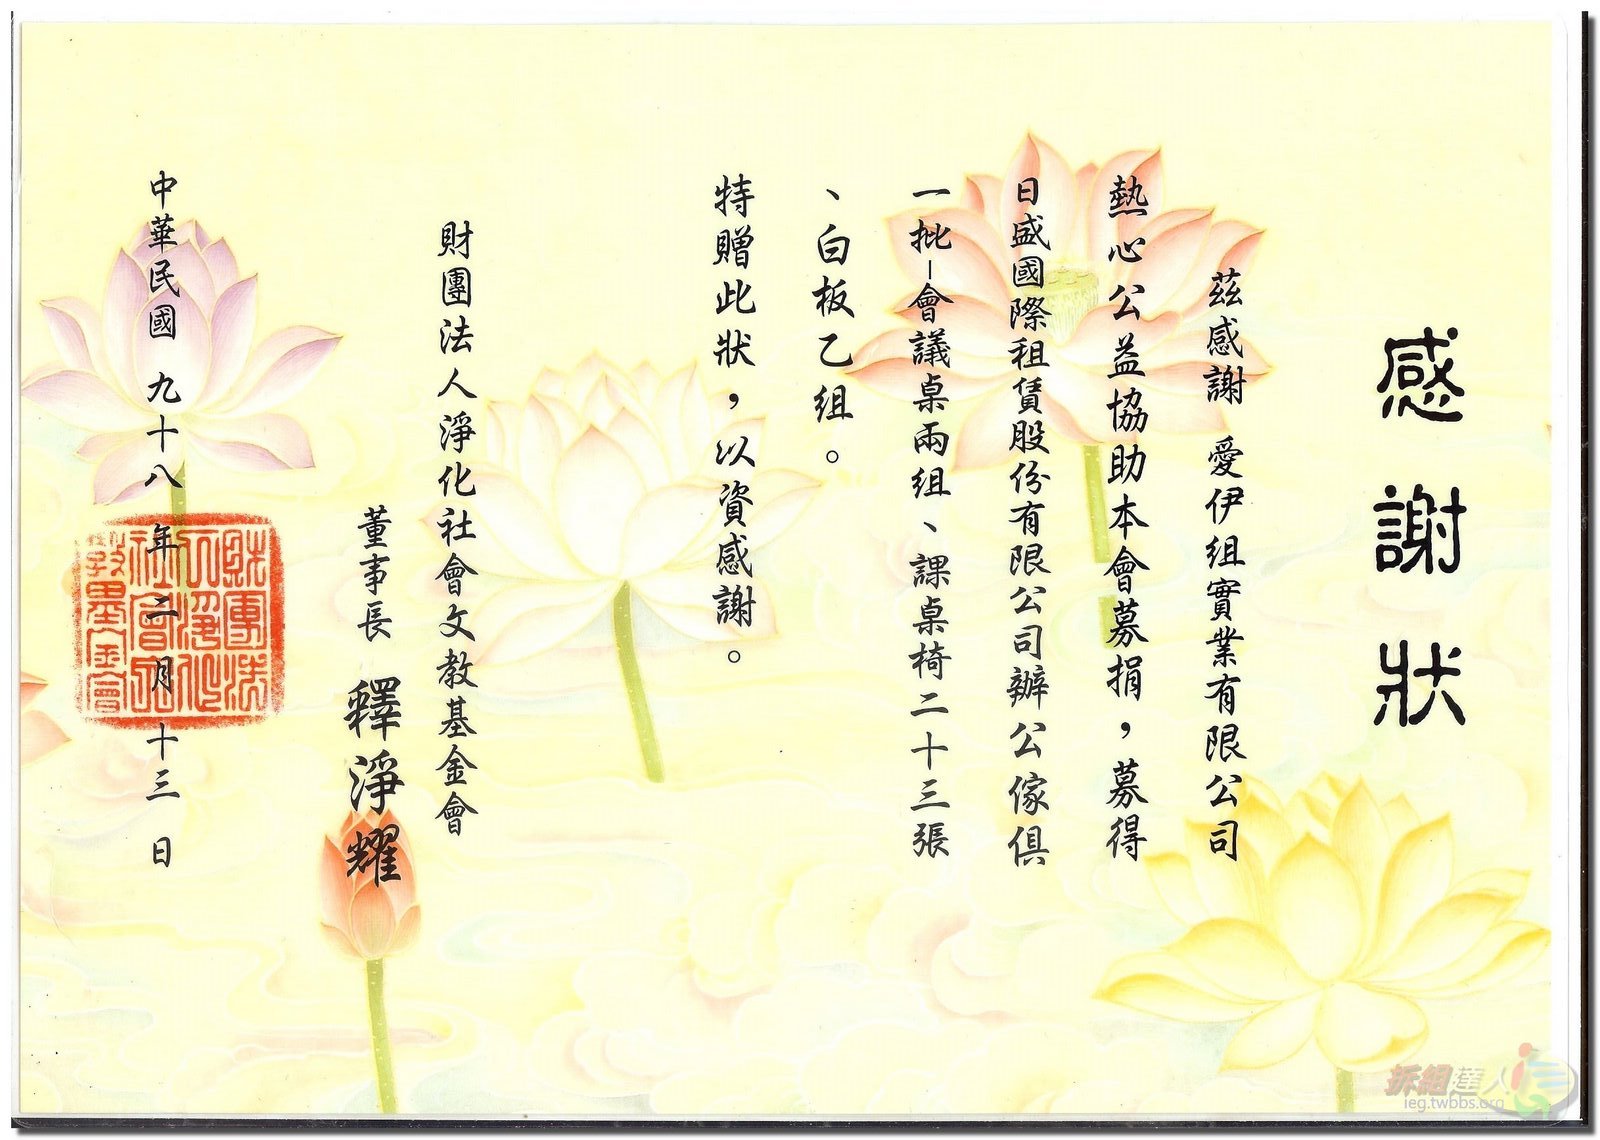 感謝狀
茲感謝 愛伊組實業有限公司
熱心公益協助本會募捐，募得
日盛國際租賃股份有限公司辦公傢俱
一批-會議桌兩組、課桌椅二十三張
、白板乙組。
特贈此狀，以資感謝。
財團法人淨化社會文教基金會
董事長 釋淨耀
中華民國 九十八 年 二 月 十三 日
財團法
人淨化
社會文
教基金會
拆組達人
ieg.twbbs.org